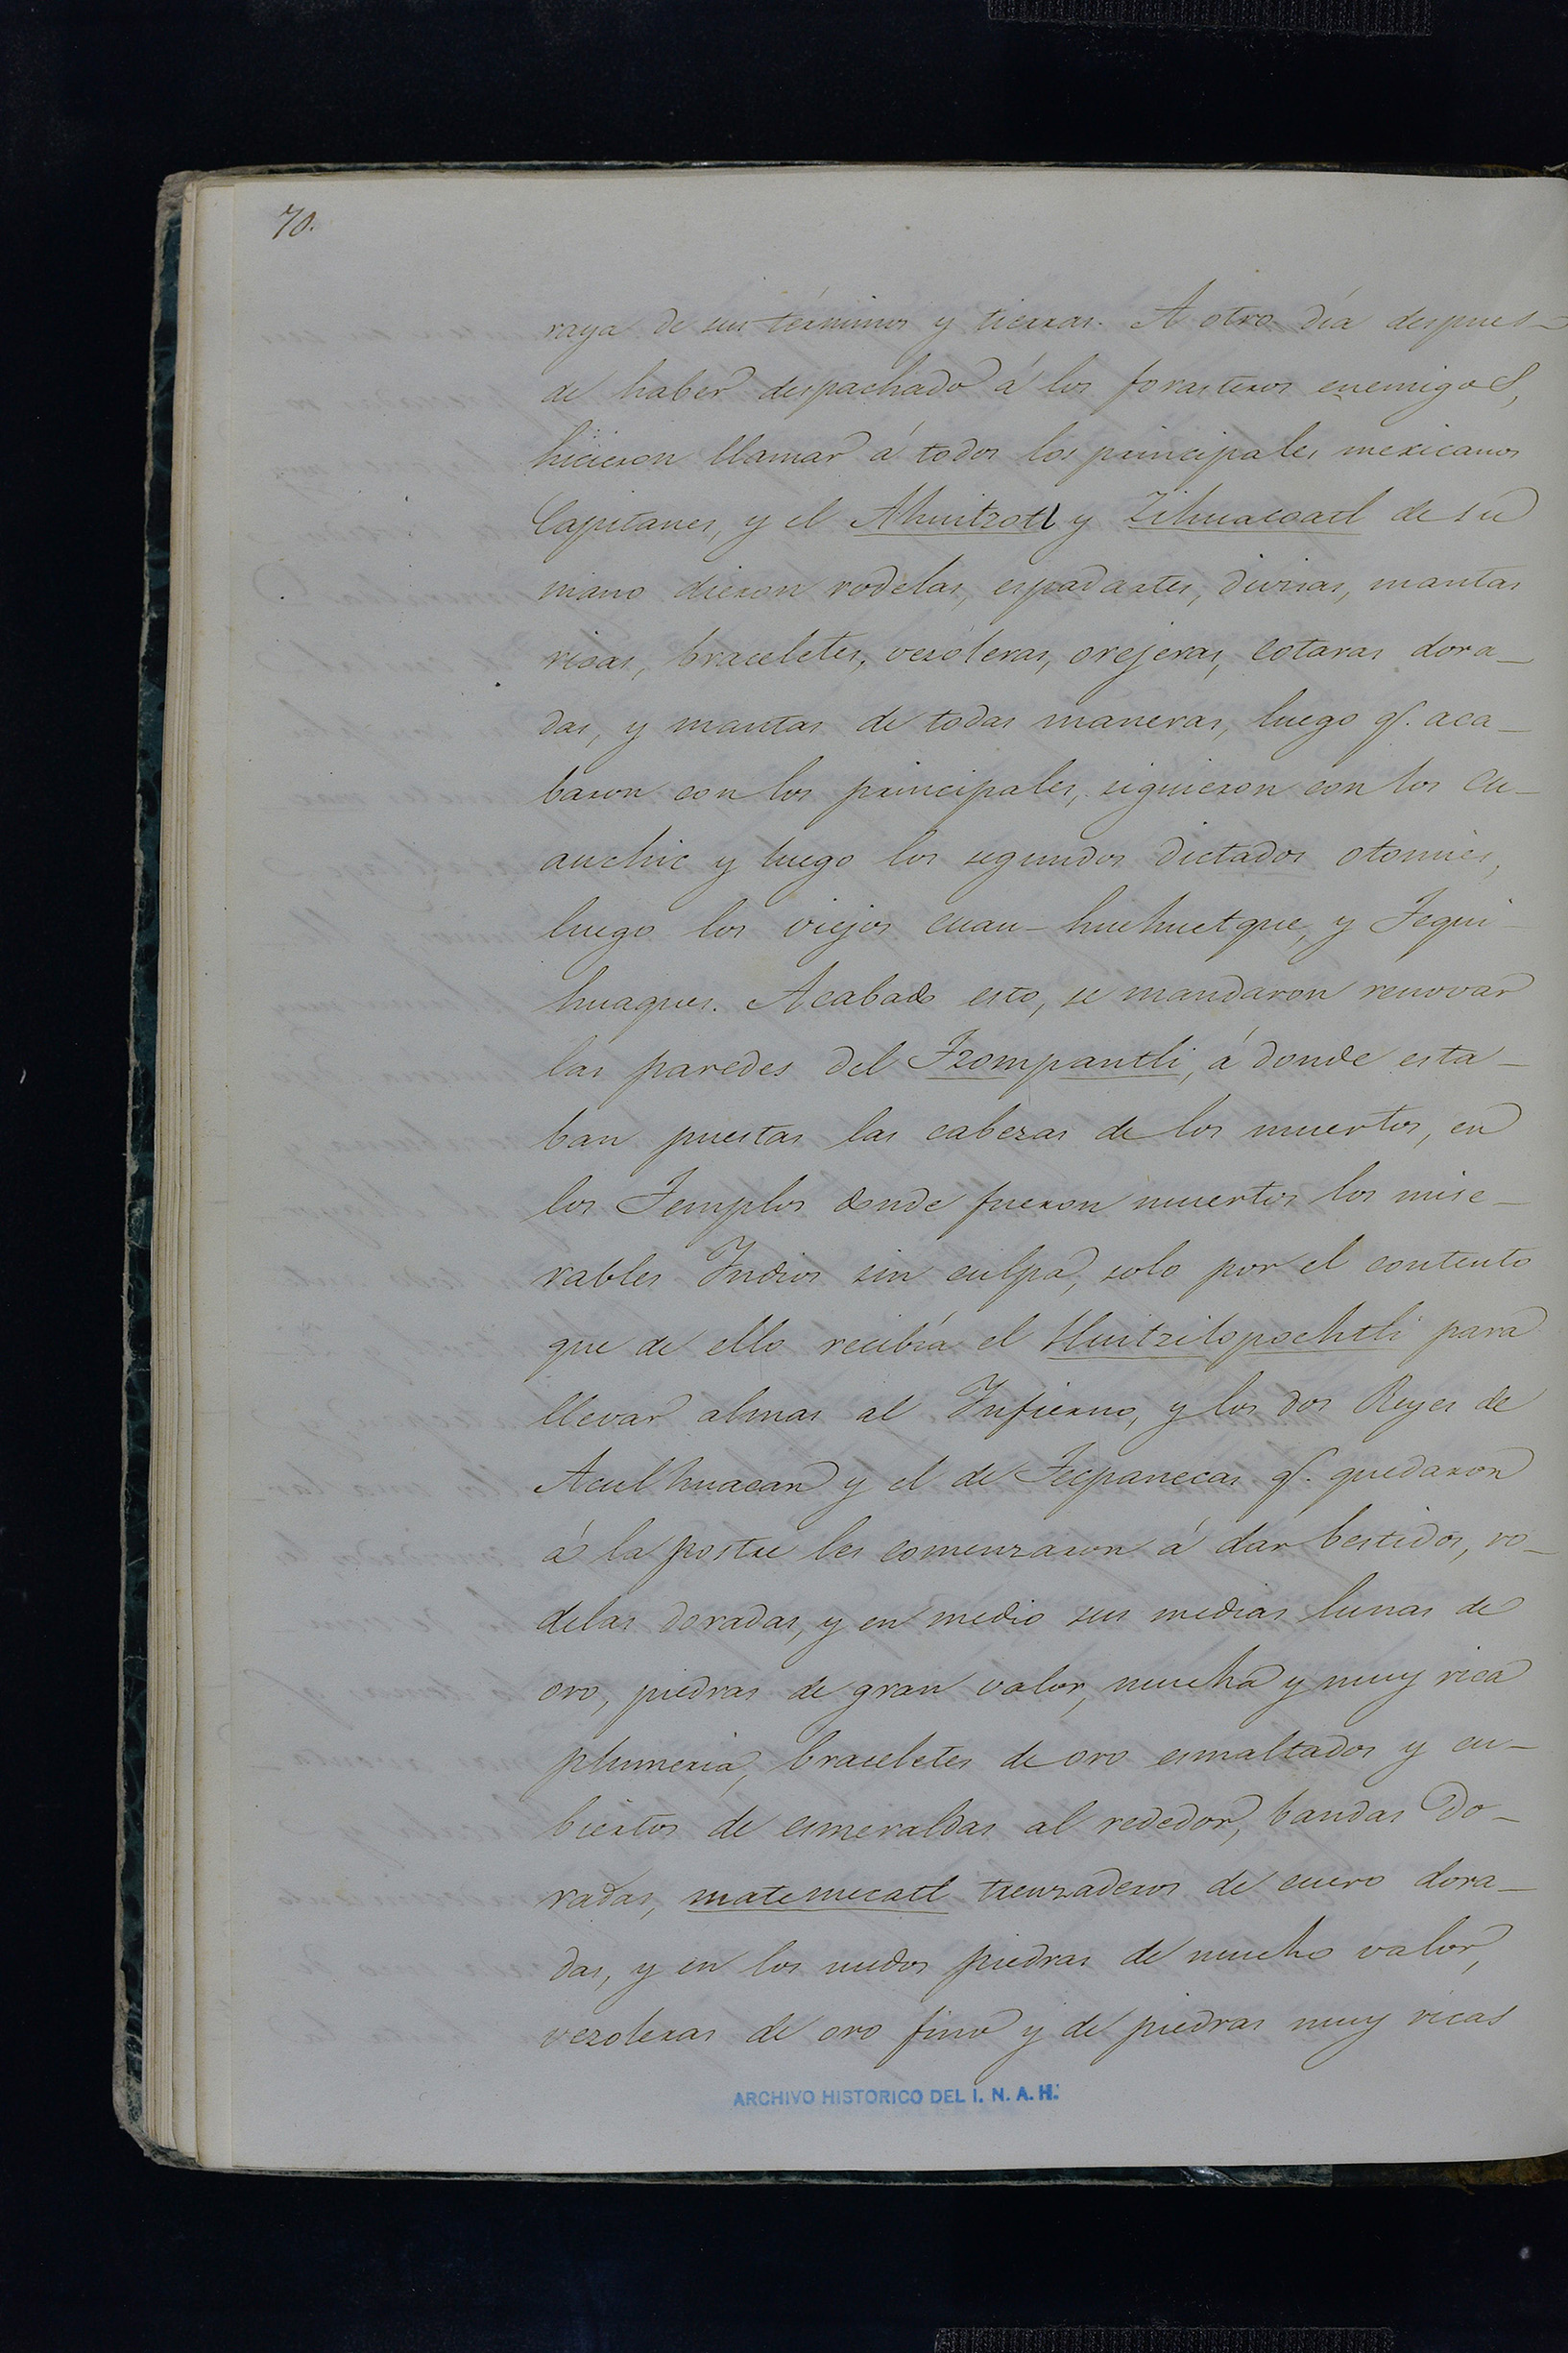 70.
raya de sus términos y tierras. A otro día despues
de haber despachado á los forasteros enemigos,
hicieron llamar á todos los principales mexicanos
Capitanes, y el Ahuitzotl y Zihuacoatl de su
mano dieron rodelas, espadartes, divisas, mantas
ricas, braceletes, vezoleras, orejeras, cotaras dora_
das, y mantas de todas maneras, luego q.e aca_
baron con los principales, siguieron con los cu_
auchic y luego los segundos dictados otomies,
luego los viejos cuau-huehuetque, y Tequi_
huaques. Acabado esto, se mandaron renovar
las paredes del Tzompantli, á donde esta_
ban puestas las cabezas de los muertos, en
los Templos donde fueron muertos los mise_
rables Indios sin culpa, solo por el contento
que de ello recibía el Huitzilopochtli para
llevar almas al Infierno, y los dos Reyes de
Aculhuacan y el de Tecpanecas q.e quedaron
á la postre les comenzaron á dar bestidos, ro_
delas doradas, y en medio sus medias lunas de
oro, piedras de gran valor, mucha y muy rica
plumeria, braceletes de oro esmaltados y cu_
biertos de esmeraldas al rededor, bandas do_
radas, matemecatl trenzaderos de cuero dora_
das, y en los nudos piedras de mucho valor,
vezoleras de oro fino y de piedras muy ricas
ARCHIVO HISTORICO DEL I. N. A. H.